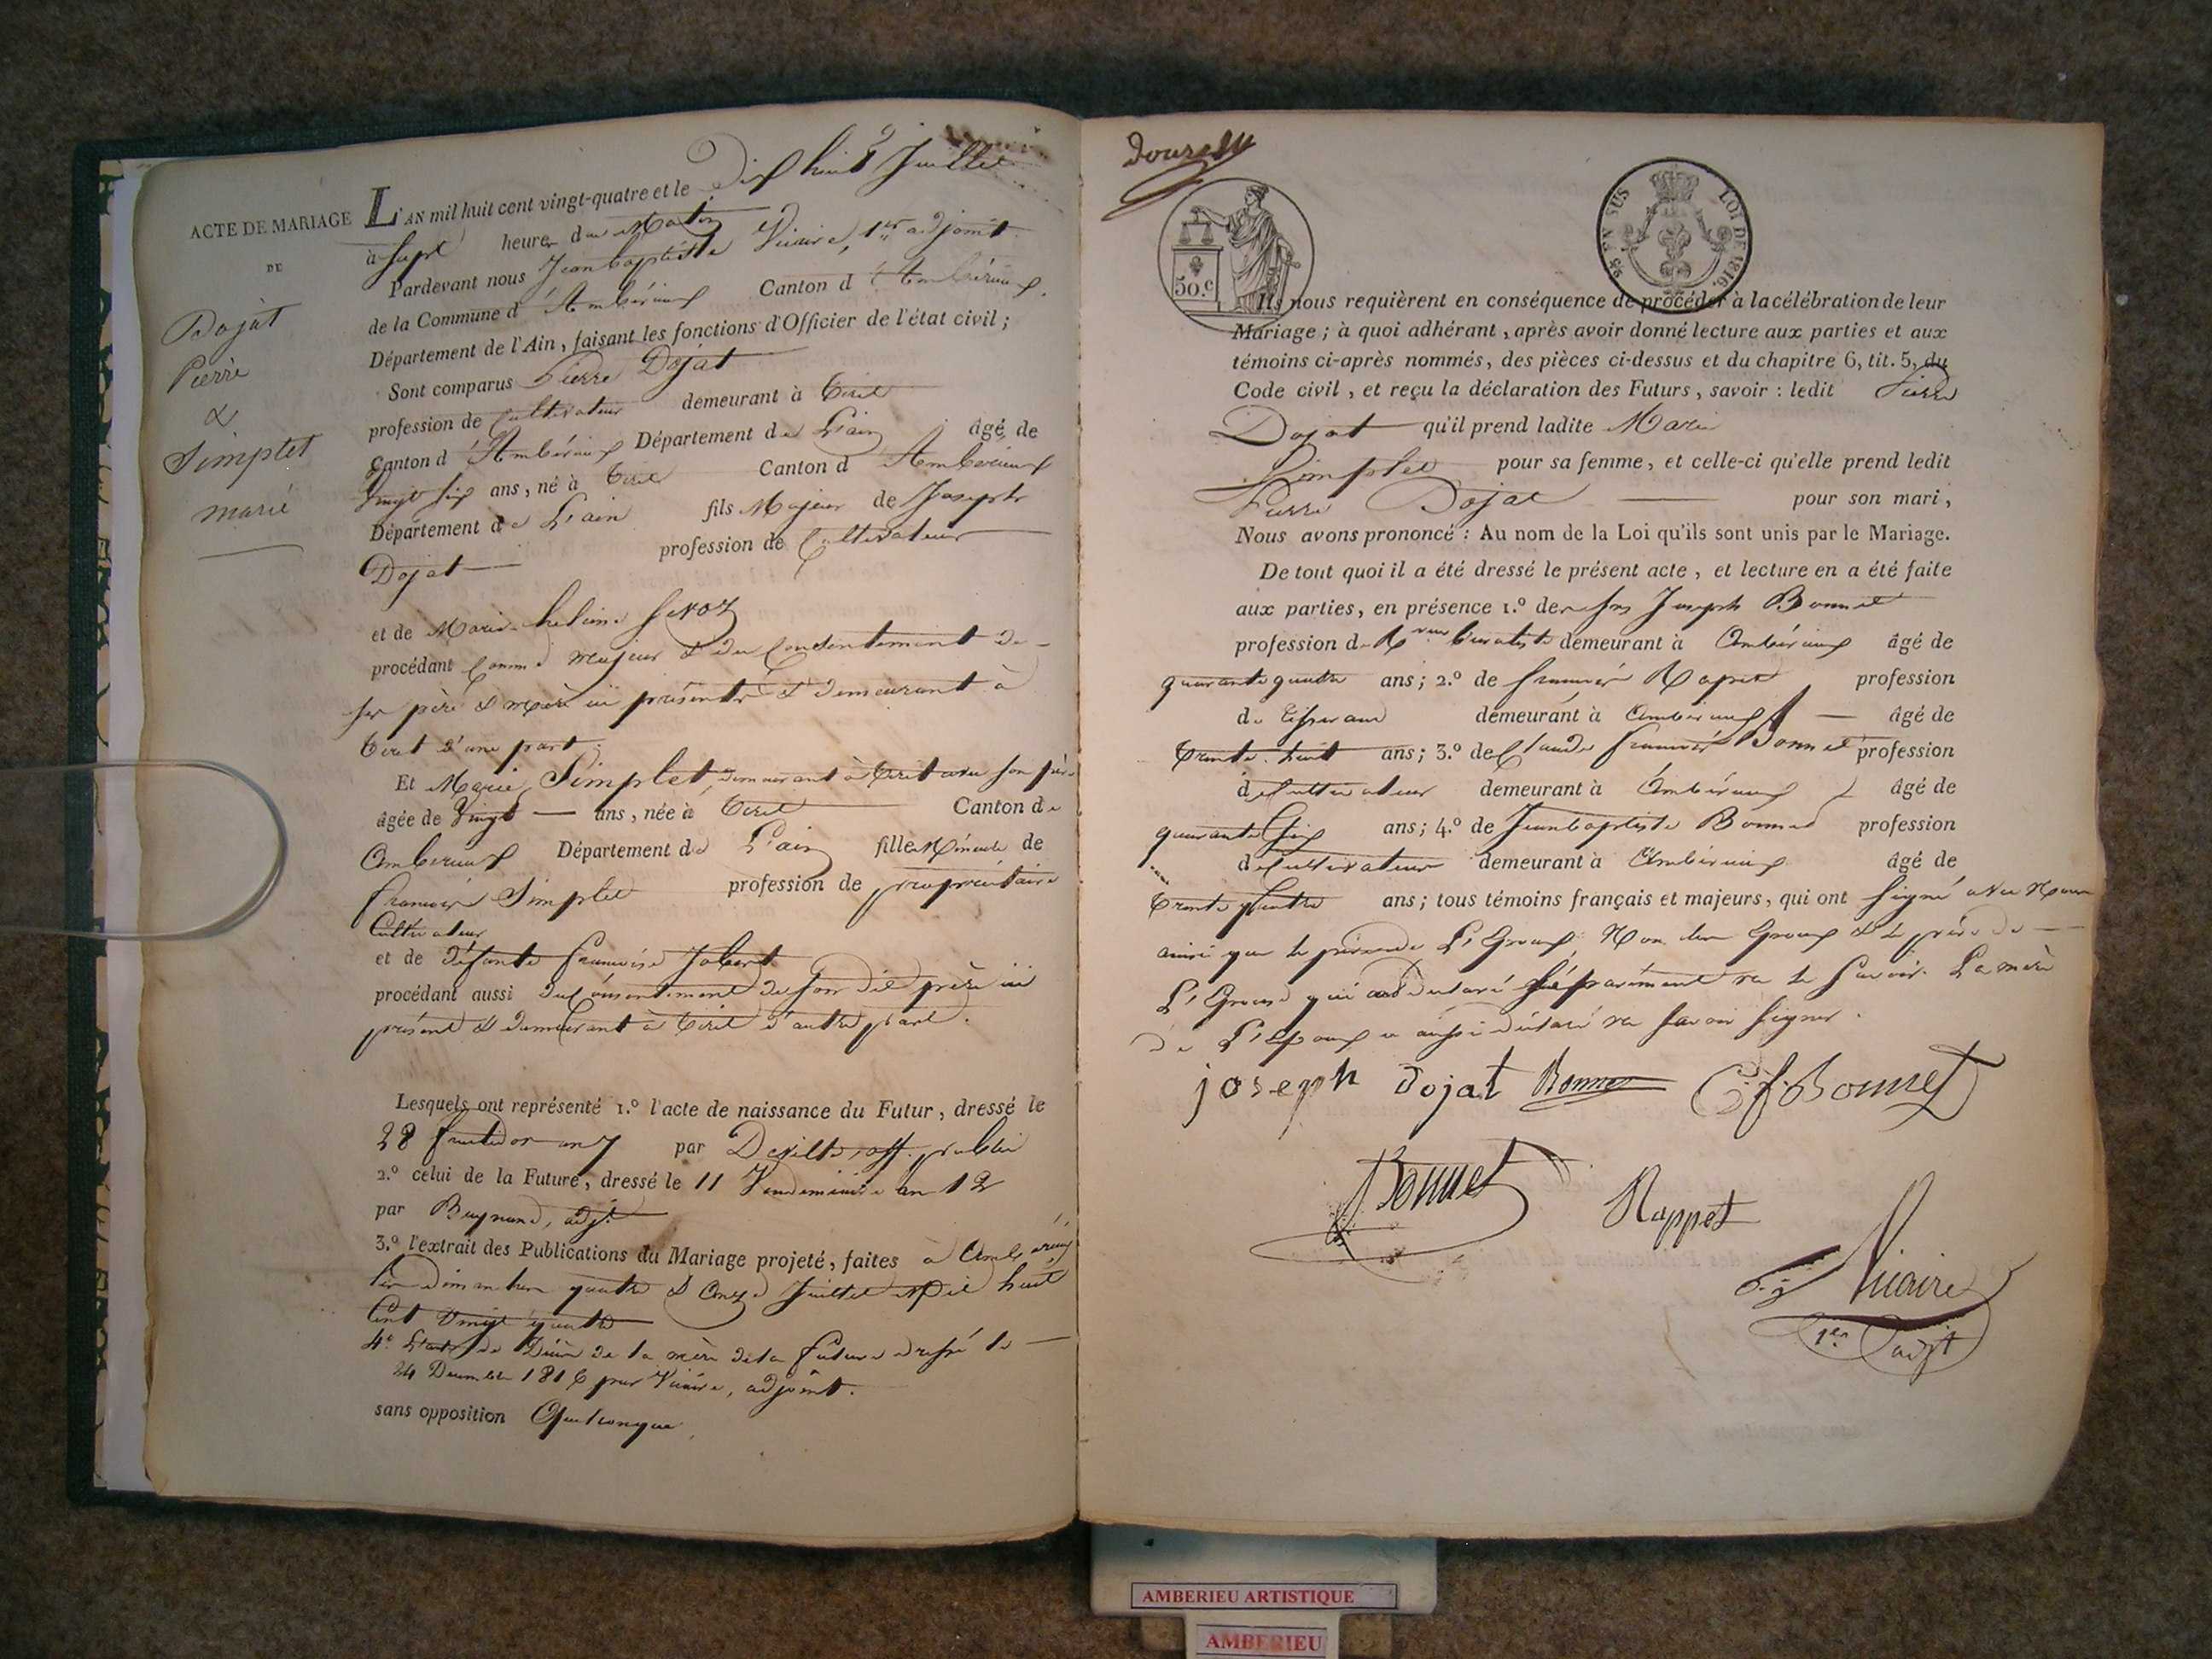 ACTE DE MARIAGE
DE
Dojat
Pierre
&
Simplet
marie
L'AN mil huit cent vingt-quatre et le Dix huit Juillet
à Sept heures du Matin
Pardevant nous Jean baptiste Vicaire, 1er adjoint
de la Commune d'Ambérieux Canton d'Ambérieux,
Département de l'Ain, faisant les fonctions d'Officier de l'état civil;
Sont comparus Pierre Dojat
profession de Cultivateur demeurant à Tiret
Canton d'Ambérieux Département de L'ain âgé de
Vingt six ans, né à Tiret Canton d'Ambérieux
Département de L'ain fils Majeur de Joseph
Dojat profession de Cultivateur
et de Marie helène
procédant Comme majeur & du Consentement de
ses père & mère ici présents & demeurant à
Tiret d'une part.
Et Marie Simplet, demeurant à Tiret avec son père
âgée de Vingt ans, née à Tiret Canton de
Ambérieux Département de L'ain fille Mineure de
françois Simplet profession de propriétaire
Cultivateur
et de défunte françoise Jobert
procédant aussi du Consentement de son dit père ici
présent & demeurant à Tiret d'autre part.
Lesquels ont représenté 1.º l'acte de naissance du Futur, dressé le
28 fructidor an 7 par off. public
2.º celui de la Future, dressé le 11 Vendemiaire an 12
par adjt
3.º l'extrait des Publications du Mariage projeté, faites à Ambérieux
les dimanches quatre & Onze Juillet Mil huit
Cent Vingt quatre
4º L'acte de Décès de la mère de la future dressé le
24 Decembre 1816 par Vicaire, adjoint.
sans opposition Quelconque.
50.c
25 EN SUS
LOI DE 1816.
Ils nous requièrent en conséquence de procéder à la célébration de leur
Mariage; à quoi adhérant, après avoir donné lecture aux parties et aux
témoins ci-après nommés, des pièces ci-dessus et du chapitre 6, tit. 5, du
Code civil, et reçu la déclaration des Futurs, savoir: ledit Pierre
Dojat qu'il prend ladite Marie
Simplet pour sa femme, et celle-ci qu'elle prend ledit
Pierre Dojat pour son mari,
Nous avons prononcé: Au nom de la Loi qu'ils sont unis par le Mariage.
De tout quoi il a été dressé le présent acte, et lecture en a été faite
aux parties, en présence 1.º des Srs Joseph Bonnet
profession de demeurant à Ambérieux âgé de
quarante quatre ans; 2.º de françois Rapet profession
de tisserand demeurant à Ambérieux âgé de
trente huit ans; 3.º de Claude françois Bonnet profession
de Cultivateur demeurant à Ambérieux âgé de
quarante six ans; 4.º de Jean baptiste Bonnet profession
de Cultivateur demeurant à Ambérieux âgé de
trente quatre ans; tous témoins français et majeurs, qui ont signé avec Nous
ainsi que le père de L'Epoux Non les Epoux & le père de
L'Epouse qui ont déclaré séparément ne le savoir. La mère
de L'Epoux a aussi déclaré ne savoir signer.
joseph dojat Bonnet C f. Bonnet
Bonnet Rappet
Vicaire
1er adjt
AMBERIEU ARTISTIQUE
AMBERIEU